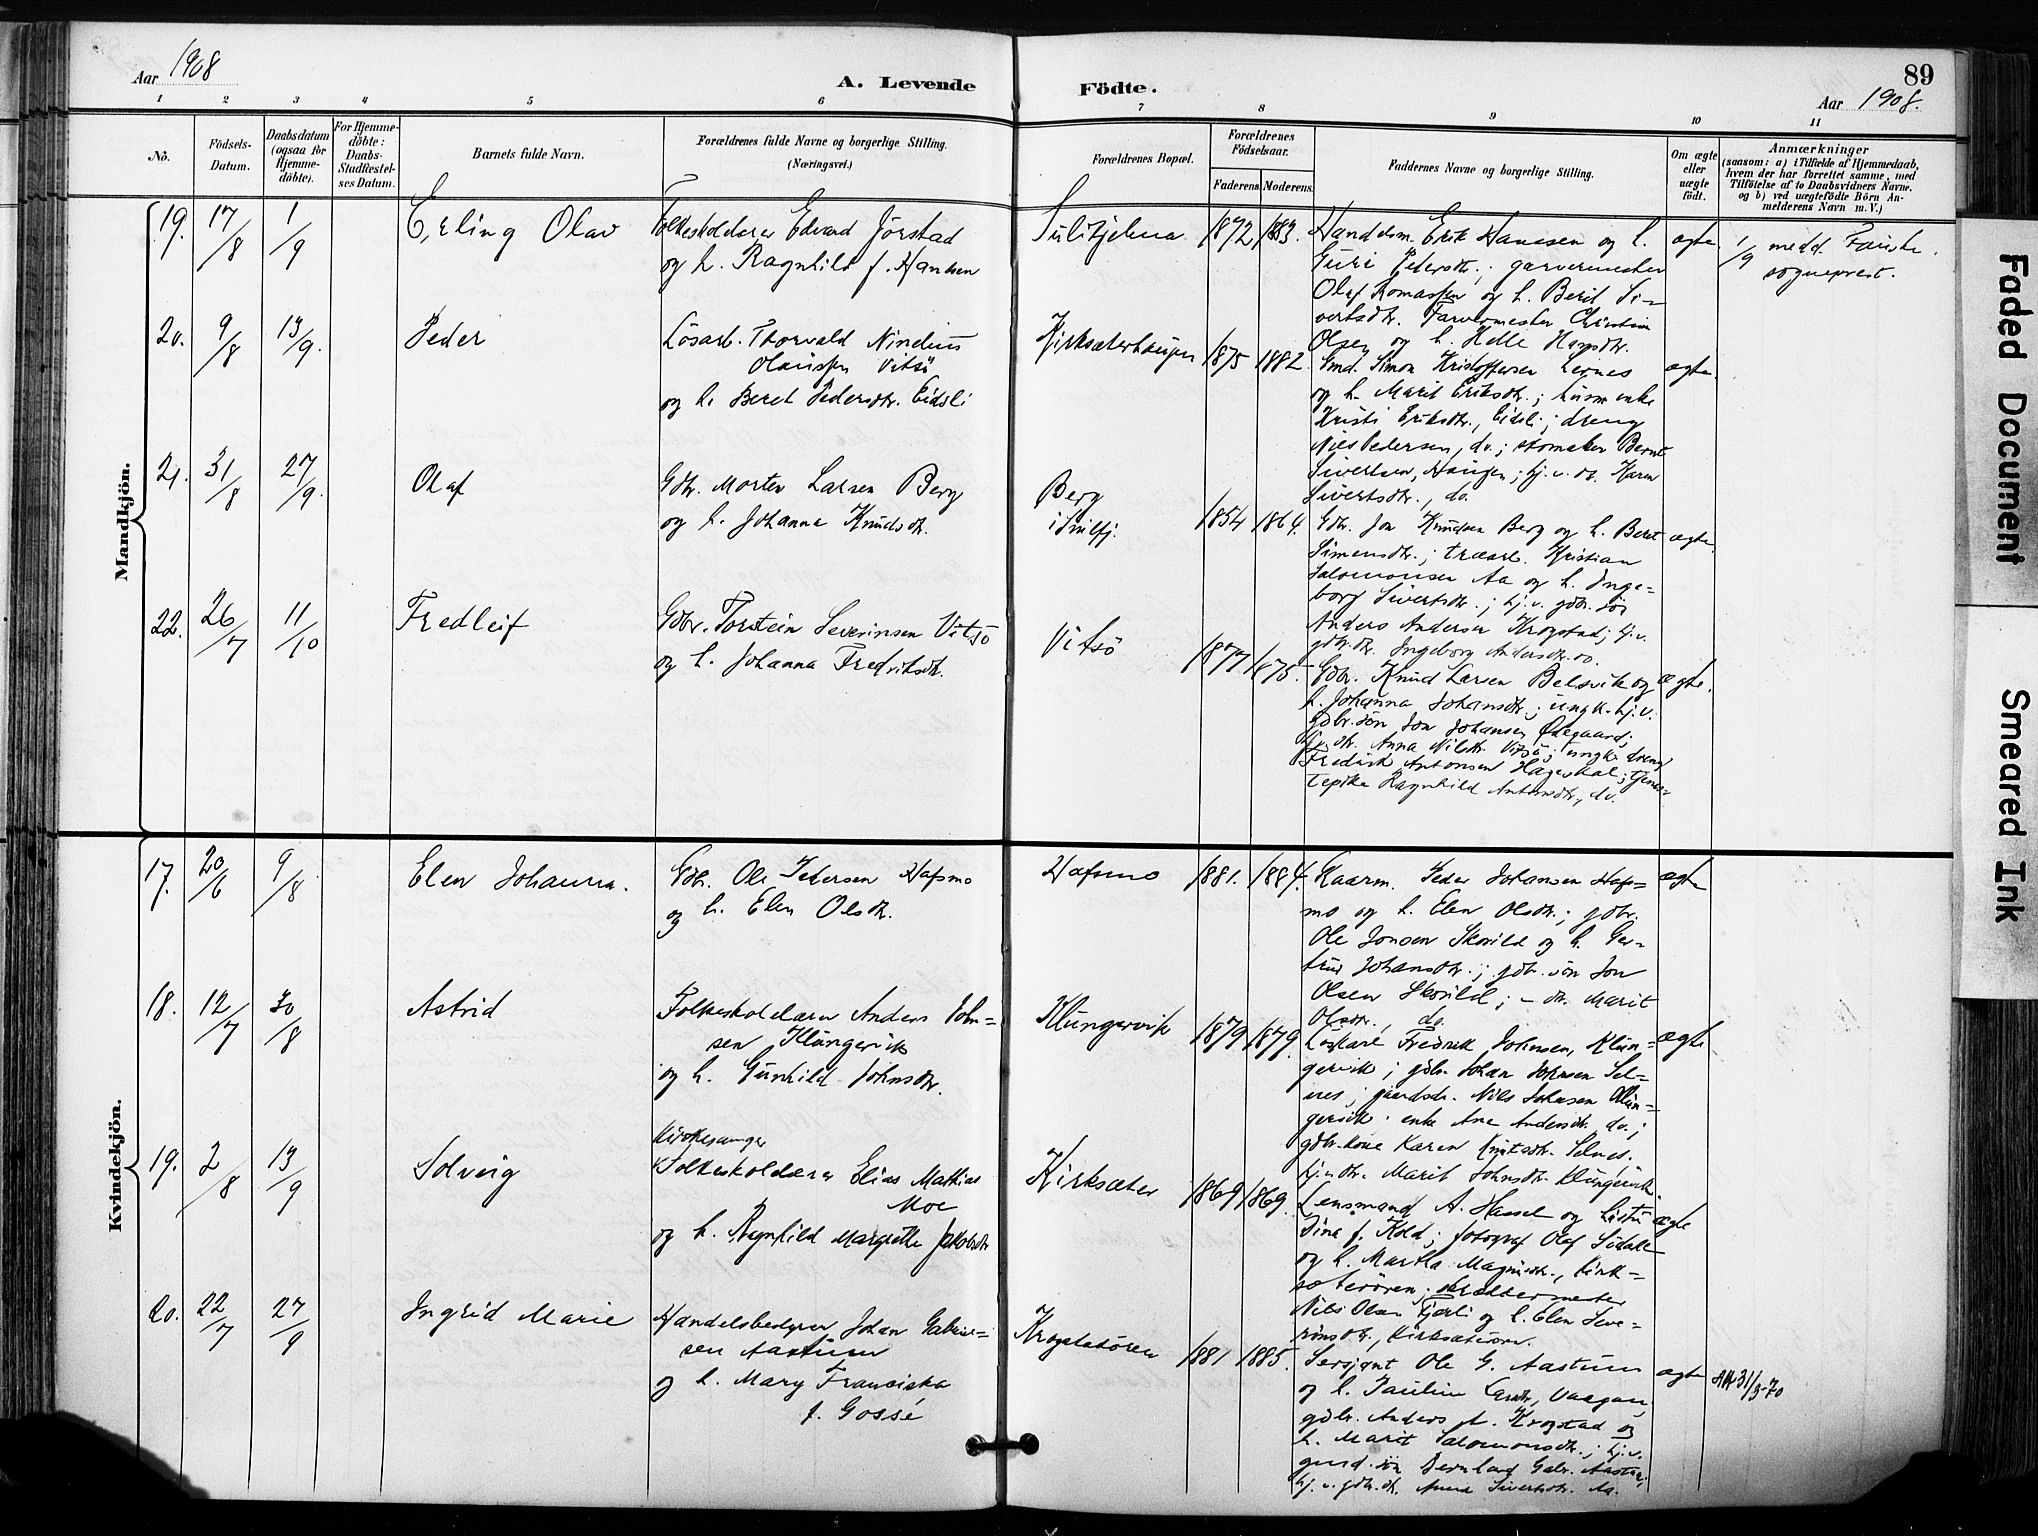 Aar 1908
A. Levende
Födte.
89
Aar 1908.
1 2 3 4 5 6 7 8 9 10 11
No.
Födsels-
Datum.
Daabsdatum
(ogsaa for
Hjemme-
döbte).
For Hjemme-
döbte:
Daabs-
Stadfæstel-
ses Datum.
Barnets fulde Navn.
Forældrenes fulde Navne og borgerlige Stilling.
(Næringsvei.)
Forældrenes Bopæl.
Forældrenes
Födselsaar.
Faderens.
Moderens.
Faddernes Navne og borgerlige Stilling.
Om ægte
eller
uægte
födt.
Anmærkninger
(saasom: a) i Tilfælde af Hjemmedaab,
hvem der har forrettet samme, med
Tilföielse af to Daabsvidners Navne.
og b) ved uægtefödte Börn An-
melderens Navn m. V.)
Mandkjön.
19. 17/8 1/9 Erling Olav
Folkeskolelærer Edvard Jörstad
og h. Ragnhild f. Hansen
Sulitjelma 1872 1883.
Handelsm. Erik Hanssen og h.
Guri Pedersdtr.; garvermester
Olaf Romassen og h. Berit Si-
vertsdtr. Farvermester Christian
Olsen og h. Helle Hansdtr.
ægte
1/9 medd. Fauske
sogneprest.
20. 9/8 13/9. Peder
Lösarb. Thorvald
Olaussen Vitsö
og h. Beret Pedersdtr. Eidsli
Kirksæterhaugen 1875 1882.
Gmd. Simon Kristoffersen
og h. Marit Eriksdtr.;
Kristi Eriksdtr., Eidsli; dreng
Nils Pedersen, do.; skomaker Bernt
Sivertsen, Haugen; hj.v. do. Karen
Sivertsdtr., do.
ægte.
21. 31/8 27/9. Olaf
Gbr. Morten Larsen Berg
og h. Johanna Knudsdtr.
Berg
i Snilfj.
1854 1864.
Gbr. Jon Knudsen Berg og h. Beret
Simensdtr.; træarb. Kristian
Salomonsen Aa og h. Inge-
borg Sivertsdtr.; hj.v. gbr. sön
Anders Andersen Krogstad; hj.v.
gbr.dtr. Ingeborg Andersdtr. do.
ægte.
22. 26/7 11/10 Fredleif
Gbr. Torstein Severinsen Vitsö
og h. Johanna Fredriksdtr.
Vitsö 1877 1875.
Gbr. Knud Larsen Belsvik og
h. Johanna Johansdtr.; ungk. hj.v.
gbr.sön Jon Johansen Ödegaard;
dtr. Anna Nilsdtr. Vitsö; ungk. dreng
Fredrik Antonsen Hageskal; tjenes-
tepike Ragnhild Antonsdtr., do.
ægte.
Kvindekjön.
17. 20/6 9/8 Elen Johanna.
Gbr. Ole Pedersen Hafsmo
og h. Elen Olsdtr.
Hafsmo 1881. 1884.
Kaarm. Peder Johansen Hafs-
mo og h. Elen Olsdtr.; gbr.
Ole Jonsen Skorild og h. Ger-
trud Johansdtr.; gbr. sön Jon
Olsen Skorild; - dtr. Marit
Olsdtr., do.
ægte
18. 12/7 30/8 Astrid
Folkeskolelærer Anders John-
sen Klungervik
og h. Gunhild Johnsdtr.
Klungervik 1879 1879.
Löskarl Fredrik Johnsen, Klun-
gervik; gbr. Johan Johnsen Sel-
nes; gaardsdr. Nils Johnsen Klun-
gervik; enke Ane Andersdtr. do.;
gbr.kone Karen Knutsdtr. Selnes.
hj.v.dtr. Marit Johnsdtr. Klungervik.
ægte
19. 2/8 13/9 Solveig
Kirkesanger
Folkeskolelærer Elias Mathias
Moe
og h. Ragnhild Margrethe Jakobsdtr.
Kirksæter 1869 1869.
Lensmand A. Hassel og hustru
Dina f. Kold; fotograf Olaf Södahl
og h. Martha Magnusdtr., Kirk-
sæterören; skræddermester
Nils Olsen Fjærli og h. Elen Seve-
rinsdtr., Kirksæterören.
ægte
20. 22/7 27/9 Ingrid Marie
Handelsbestyrer Johan Gabriel-
sen Aastum
og h. Mary Franciska
f. Gossé
Krogstadören 1881 1885.
Sersjant Ole G. Aastum
og h. Pauline Vaagan,
gbr. Anders A. Krogstad og
h. Marit Salomonsdtr.; hj.v.
gmd. sön Bernhard Gabr. Aastum,
hj.v. gbr.dtr. Anna Sivertsdtr. Aa.
ægte
31/3-70
Faded Document
Smeared Ink